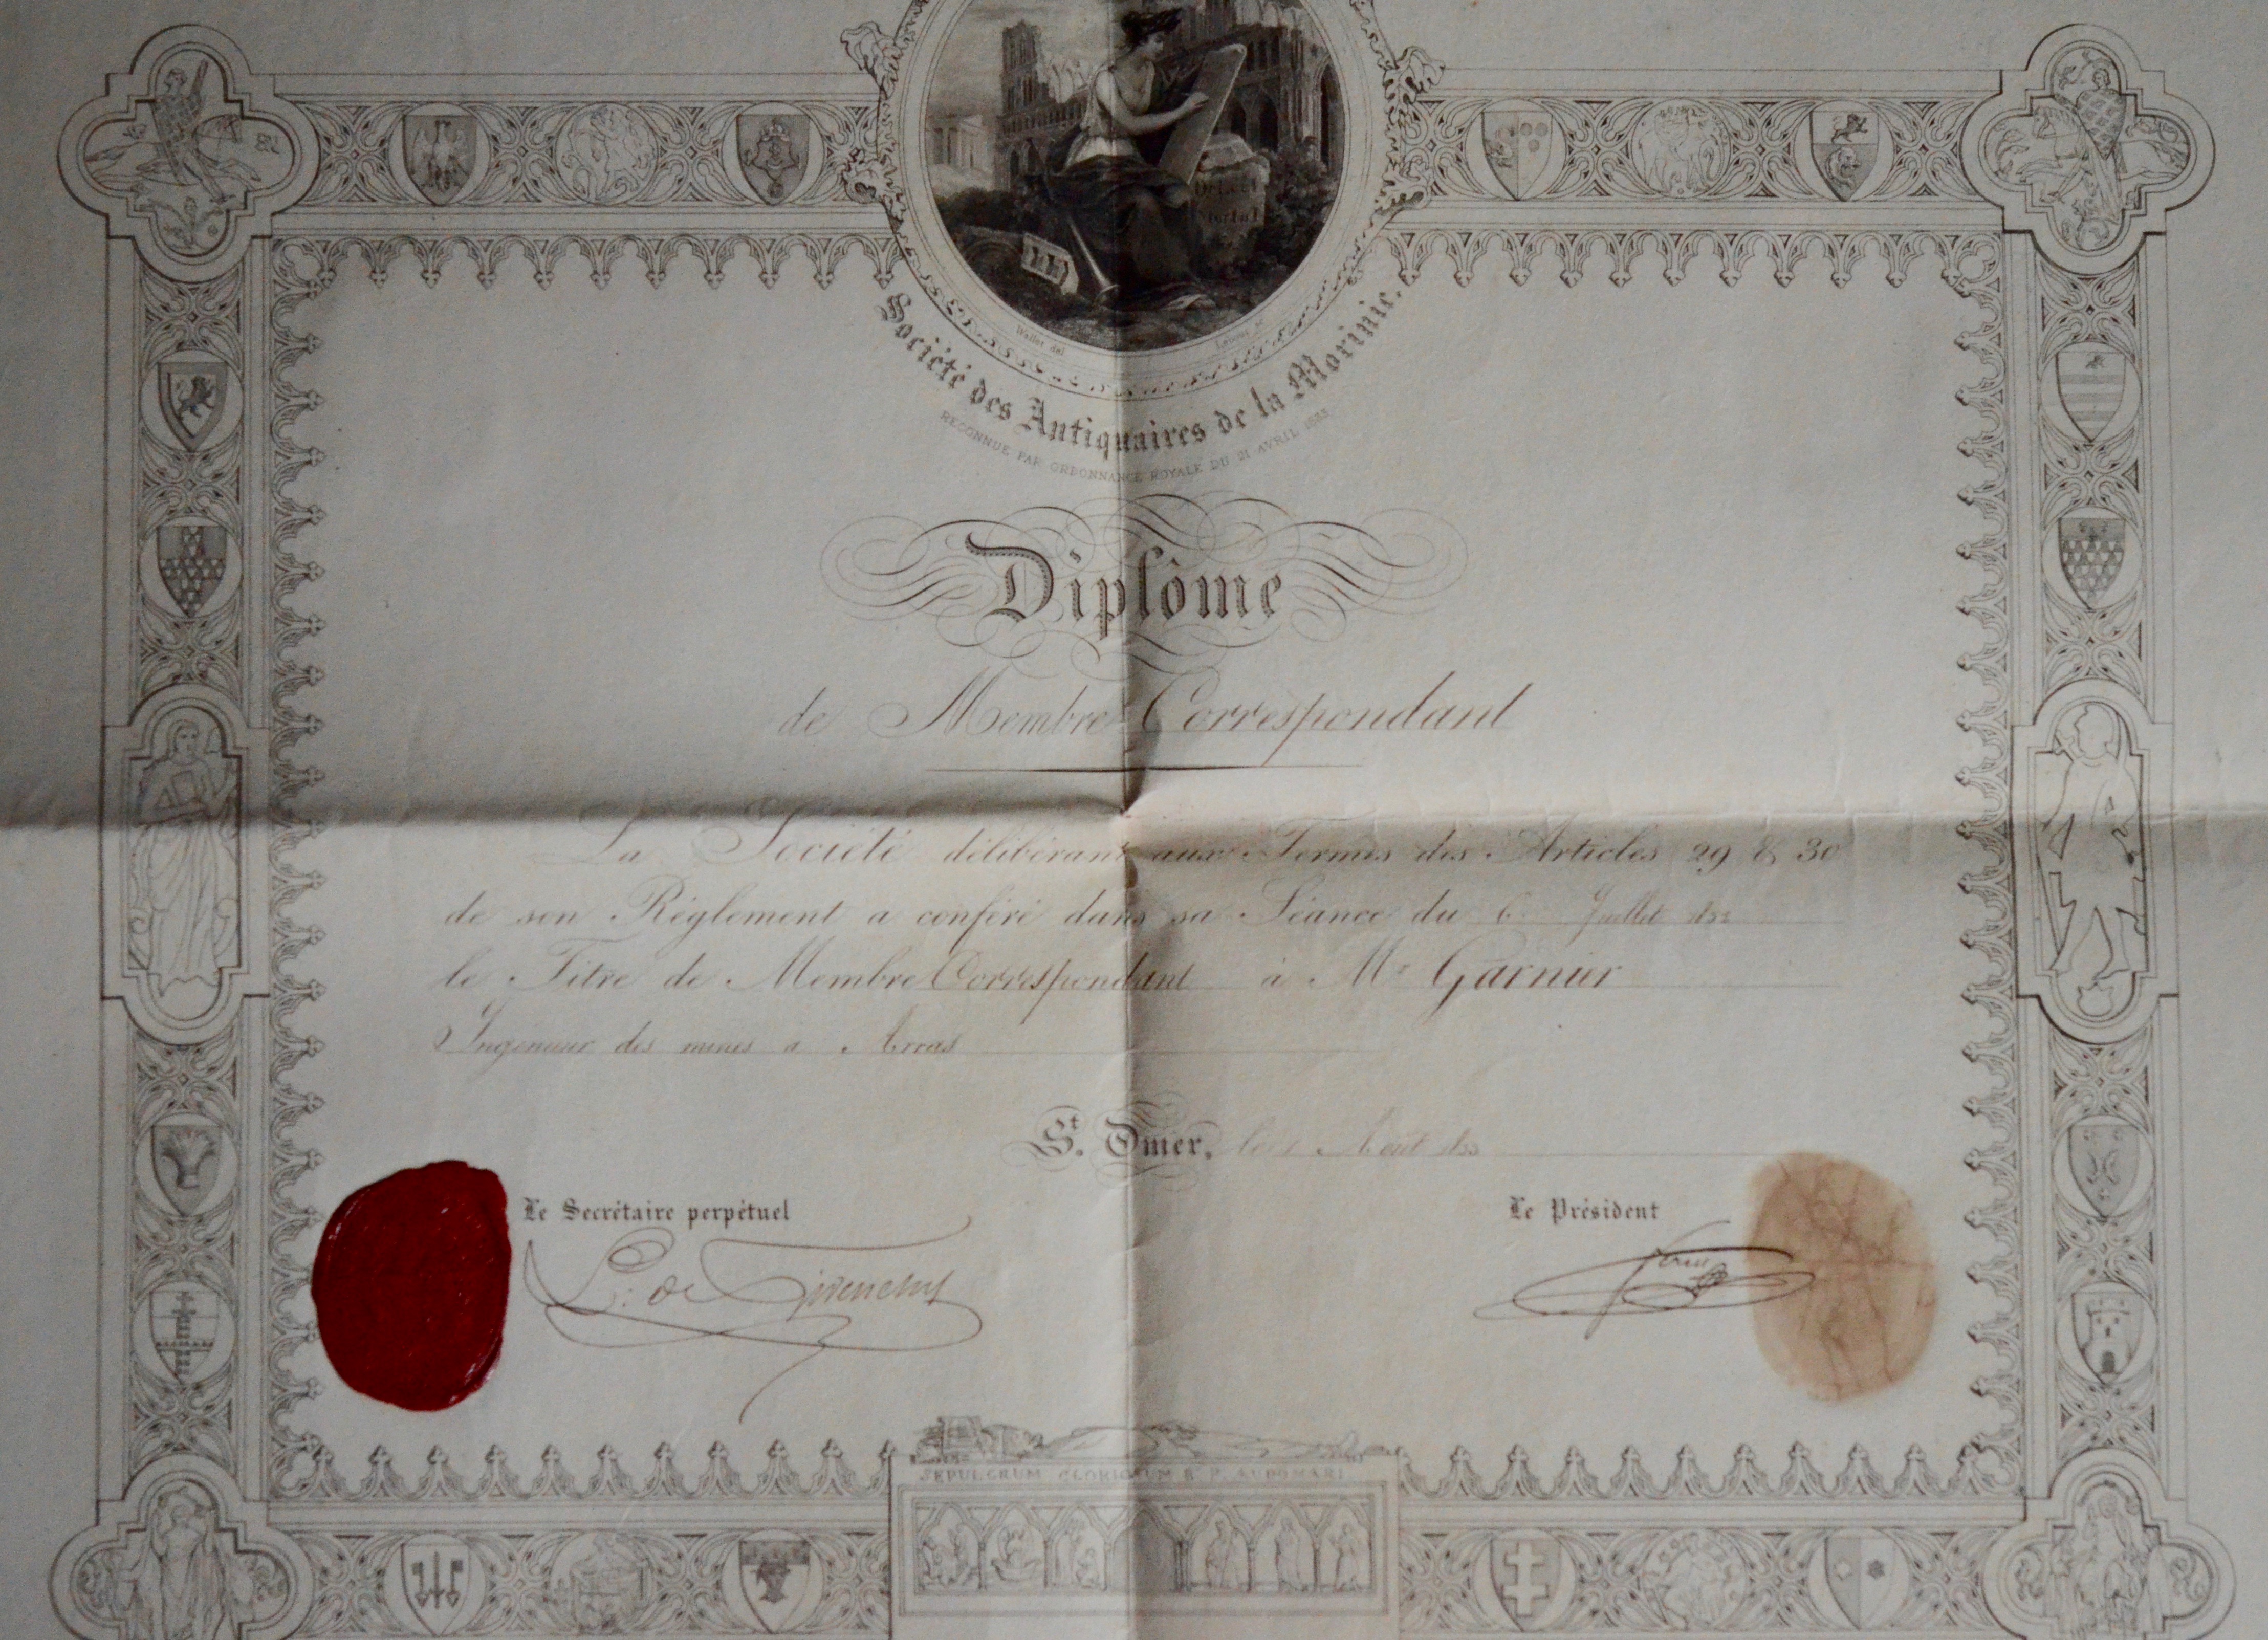 Wallet del.
Société des Antiquaires de la Morinie.
RECONNUE PAR ORDONNANCE ROYALE DU 21 AVRIL 1833
Diplôme
de Membre Correspondant
La Société délibérant aux Termes des Articles 29 & 30
de son Réglement a conféré dans sa Séance du 6 Juillet
le Titre de Membre Correspondant à Mr Garnier
Ingénieur des mines a Arras
St. Omer, le 1 Aout
Le Secrétaire perpétuel
Le Président
L. de Givenchy
SEPULCRUM GLORIOSUM B. P. AUDOMARI